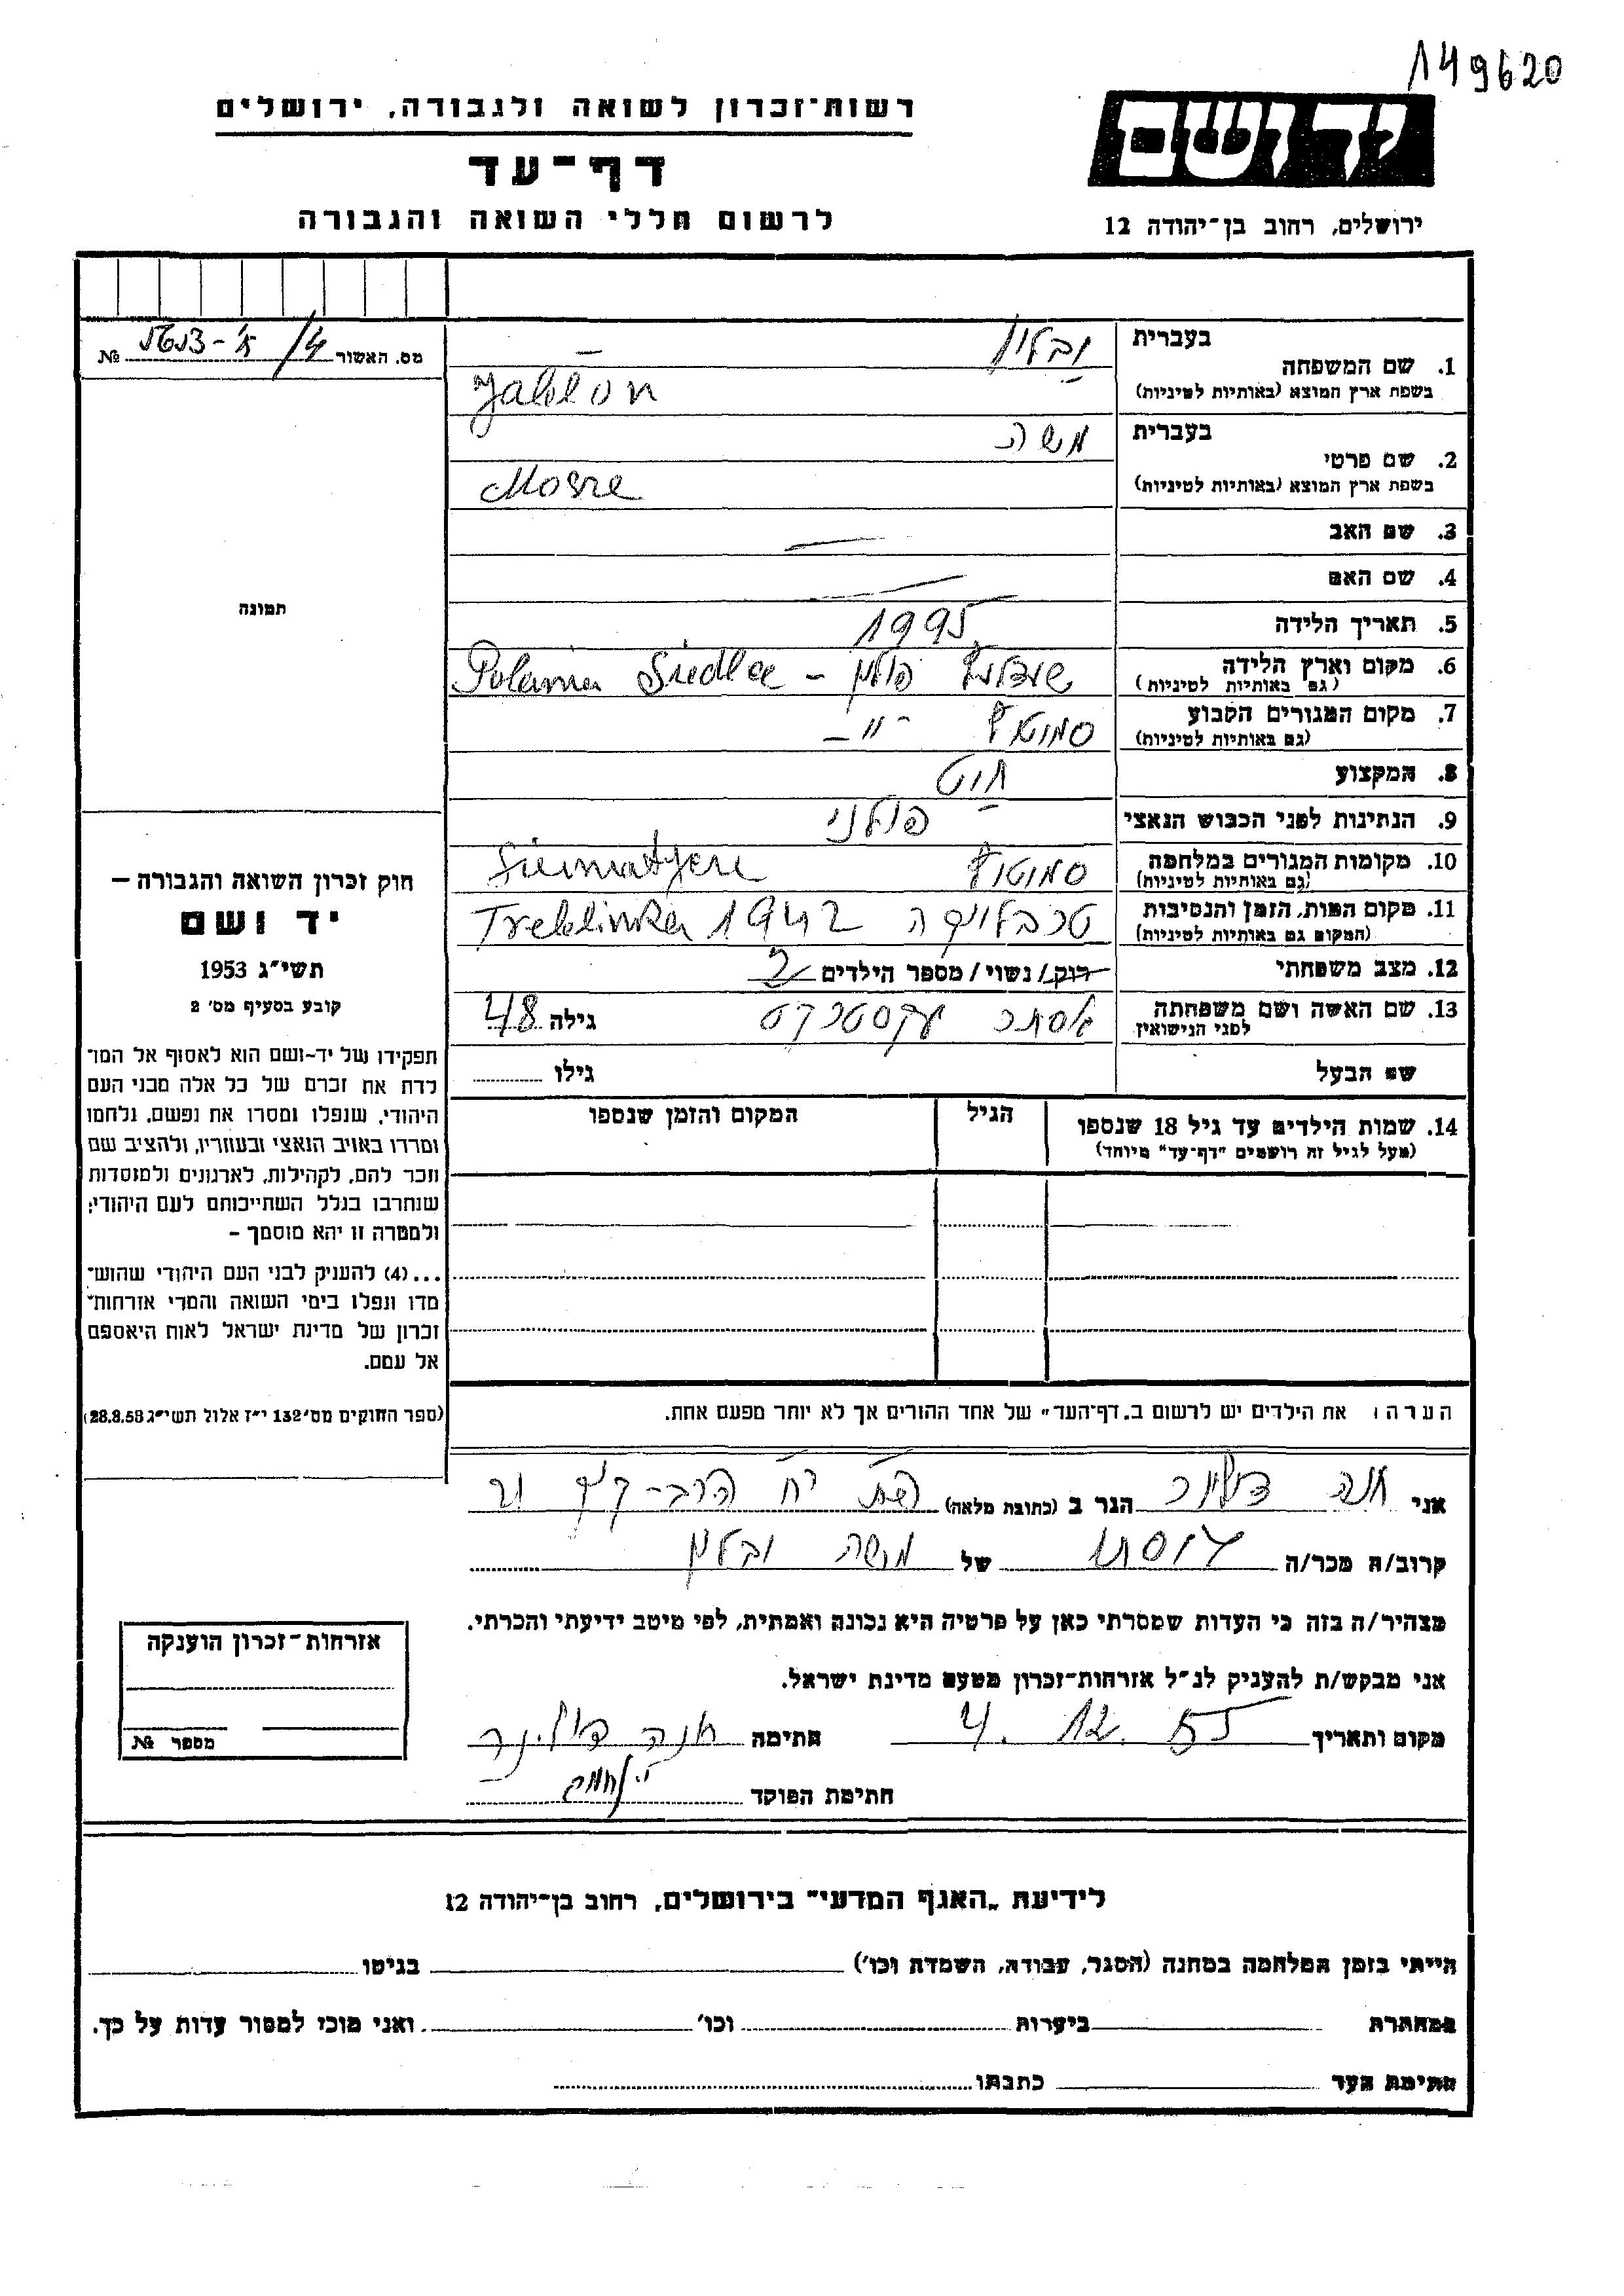 149620
יד ושם
ירושלים, רחוב בן־יהודה 12
רשות־זכרון לשואה ולגבורה, ירושלים
דף־עד
לרשום חללי השואה והגבורה
מס. האשור № 4/
1. שם המשפחה
בעברית יבלון
בשפת ארץ המוצא (באותיות לטיניות) Jablon
2. שם פרטי
בעברית משה
בשפת ארץ המוצא (באותיות לטיניות) Mosze
3. שם האב —
4. שם האם —
5. תאריך הלידה 1995
6. מקום וארץ הלידה פולין - Siedlce Polania
(גם באותיות לטיניות)
7. מקום המגורים הקבוע - " -
(גם באותיות לטיניות)
8. המקצוע חיט
9. הנתינות לפני הכבוש הנאצי פולני
10. מקומות המגורים במלחמה
(גם באותיות לטיניות)
11. מקום המות, הזמן והנסיבות טרבלינקה 1942 Treblinka
(המקום גם באותיות לטיניות)
12. מצב משפחתי רוק/נשוי/מספר הילדים 2
13. שם האשה ושם משפחתה אסתר גילה 48
לפני הנישואין
שם הבעל גילו
14. שמות הילדים עד גיל 18 שנספו הגיל המקום והזמן שנספו
(מעל לגיל זה רושמים "דף־עד" מיוחד)
הערה: את הילדים יש לרשום ב„דף־העד" של אחד ההורים אך לא יותר מפעם אחת.
תמונה
חוק זכרון השואה והגבורה –
יד ושם
תשי"ג 1953
קובע בסעיף מס' 2
תפקידו של יד-ושם הוא לאסוף אל המו־
לדת את זכרם של כל אלה מבני העם
היהודי, שנפלו ומסרו את נפשם, נלחמו
ומרדו באויב הנאצי ובעוזריו, ולהציב שם
וזכר להם, לקהילות, לארגונים ולמוסדות
שנחרבו בגלל השתייכותם לעם היהודי;
ולמטרה זו יהא מוסמך –
...(4) להעניק לבני העם היהודי שהוש־
מדו ונפלו בימי השואה והמרי אזרחות־
זכרון של מדינת ישראל לאות היאספם
אל עמם.
(ספר החוקים מס' 132 י"ז אלול תשי"ג 28.8.53)
אני חנה הגר ב (כתובת מלאה)
קרוב/ה מכר/ה של משה יבלון
מצהיר/ה בזה כי העדות שמסרתי כאן על פרטיה היא נכונה ואמתית, לפי מיטב ידיעתי והכרתי.
אני מבקש/ת להעניק לנ"ל אזרחות־זכרון מטעם מדינת ישראל.
מקום ותאריך 4. 12. 55 חתימה חנה
חתימת הפוקד
אזרחות־זכרון הוענקה
מספר №
לידיעת „האגף המדעי" בירושלים, רחוב בן־יהודה 12
הייתי בזמן המלחמה במחנה (הסגר, עבודה, השמדה וכו') בגיטו
במחתרת ביערות וכו' ואני מוכן למסור עדות על כך.
חתימת העד כתבתו